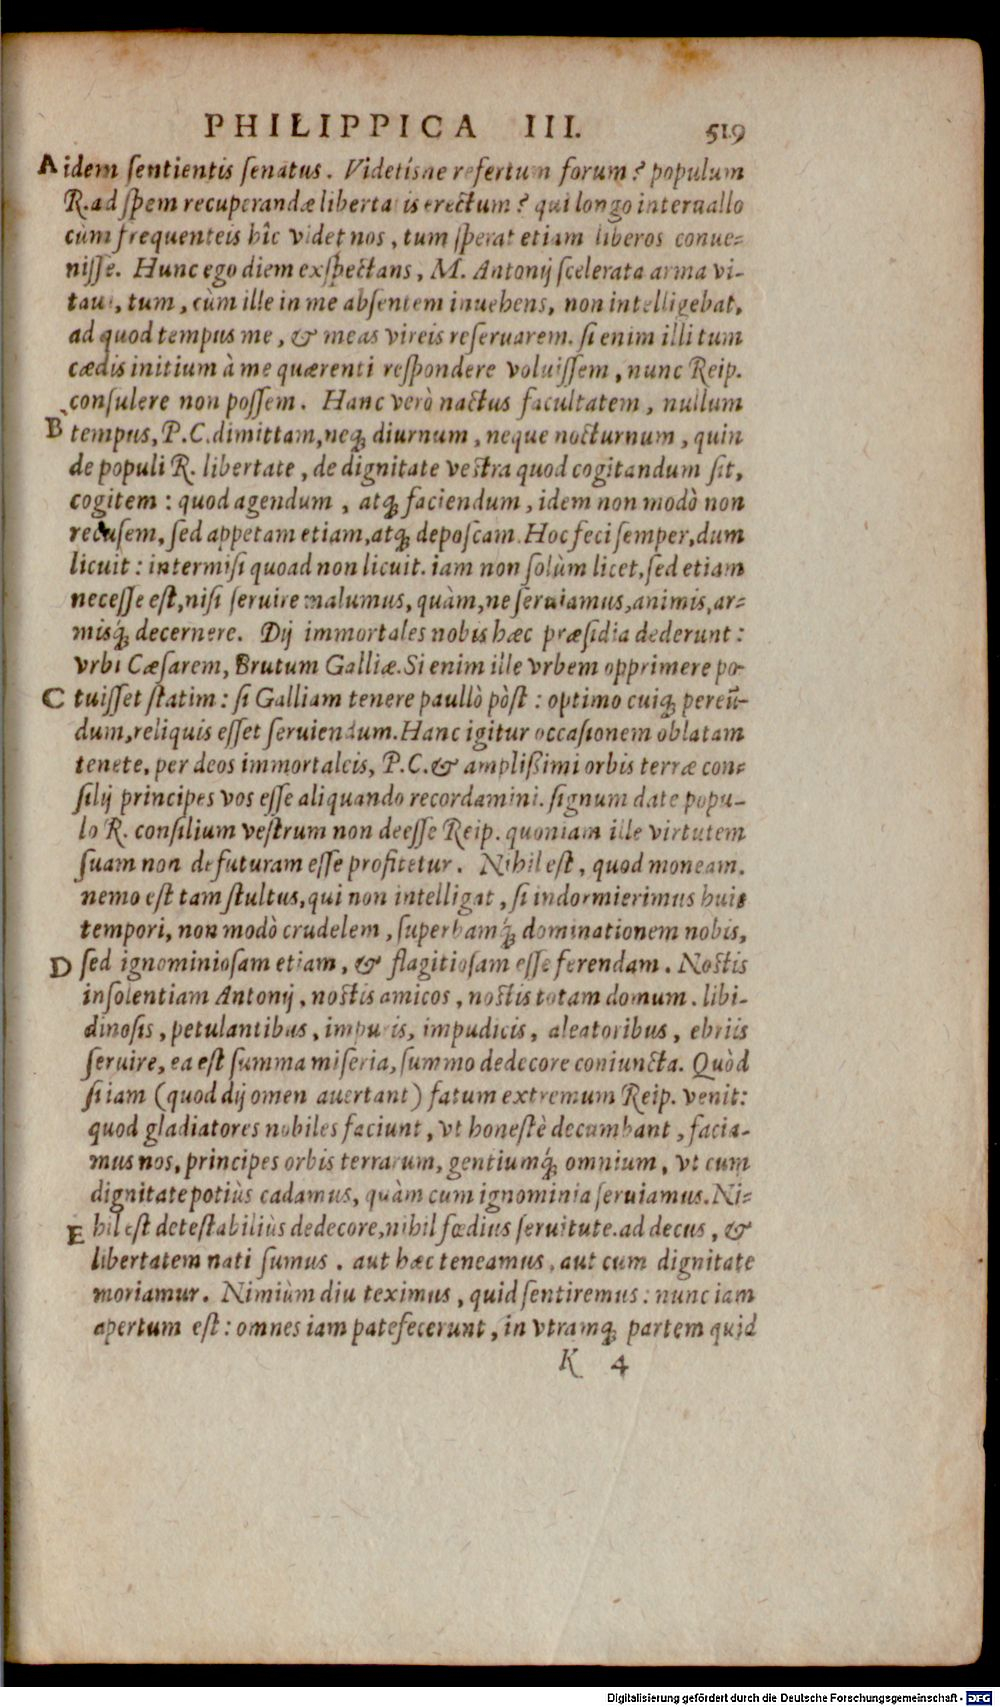 PHILIPPICA III. 519
A idem sentientis senatus. Videtisne refertum forum? populum
R. ad spem recuperandæ libertatis erectum? qui longo interuallo
cùm frequenteis hîc videt nos, tum sperat etiam liberos conue=
nisse. Hunc ego diem exspectans, M. Antonij scelerata arma vi-
taui, tum, cùm ille in me absentem inuehens, non intelligebat,
ad quod tempus me, & meas vireis reseruarem. si enim illi tum
cædis initium à me quærenti respondere voluissem, nunc Reip.
consulere non possem. Hanc verò nactus facultatem, nullum
B tempus, P. C. dimittam, neq; diurnum, neque nocturnum, quin
de populi R. libertate, de dignitate vestra quod cogitandum sit,
cogitem: quod agendum, atq; faciendum, idem non modò non
recusem, sed appetam etiam, atq; deposcam. Hoc feci semper, dum
licuit: intermisi quoad non licuit. iam non solùm licet, sed etiam
necesse est, nisi seruire malumus, quàm, ne seruiamus, animis, ar=
misq́; decernere. Dij immortales nobis hæc præsidia dederunt:
vrbi Cæsarem, Brutum Galliæ. Si enim ille vrbem opprimere po-
C tuisset statim: si Galliam tenere paullò pòst: optimo cuiq; pereũ-
dum, reliquis esset seruiendum. Hanc igitur occasionem oblatam
tenete, per deos immortaleis, P. C. & amplißimi orbis terræ con=
silij principes vos esse aliquando recordamini. signum date popu-
lo R. consilium vestrum non deesse Reip. quoniam ille virtutem
suam non defuturam esse profitetur. Nihil est, quod moneam.
nemo est tam stultus, qui non intelligat, si indormierimus huic
tempori, non modò crudelem, superbamq́; dominationem nobis,
D sed ignominiosam etiam, & flagitiosam esse ferendam. Nostis
insolentiam Antonij, nostis amicos, nostis totam domum. libi-
dinosis, petulantibus, impuris, impudicis, aleatoribus, ebriis
seruire, ea est summa miseria, summo dedecore coniuncta. Quòd
si iam (quod dij omen auertant) fatum extremum Reip. venit:
quod gladiatores nobiles faciunt, vt honestè decumbant, facia-
mus nos, principes orbis terrarum, gentiumq́; omnium, vt cum
dignitate potiùs cadamus, quàm cum ignominia seruiamus. Ni=
E hil est detestabiliùs dedecore, nihil fœdius seruitute. ad decus, &
libertatem nati sumus. aut hæc teneamus, aut cum dignitate
moriamur. Nimiùm diu teximus, quid sentiremus: nunc iam
apertum est: omnes iam patefecerunt, in vtramq; partem quid
K 4
Digitalisierung gefördert durch die Deutsche Forschungsgemeinschaft - DFG